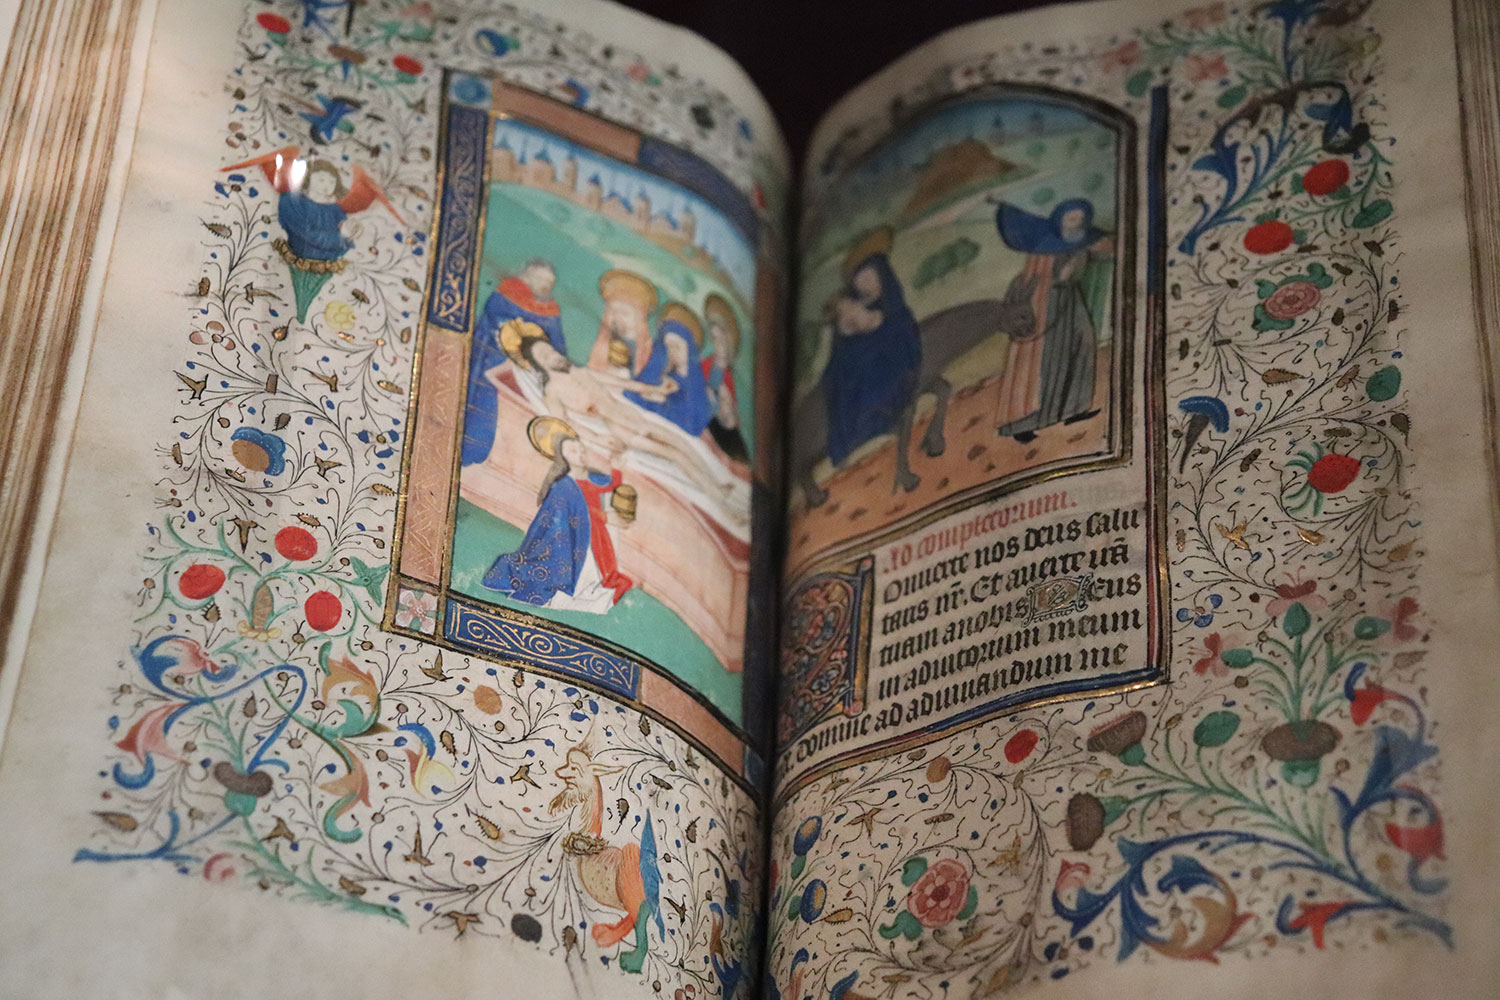 Ad completorium.
Onuerte nos deus salu
taris nr̄. Et auerte irā
tuam a nobis Deus
in adiutorium meum
domine ad adiuuandum me